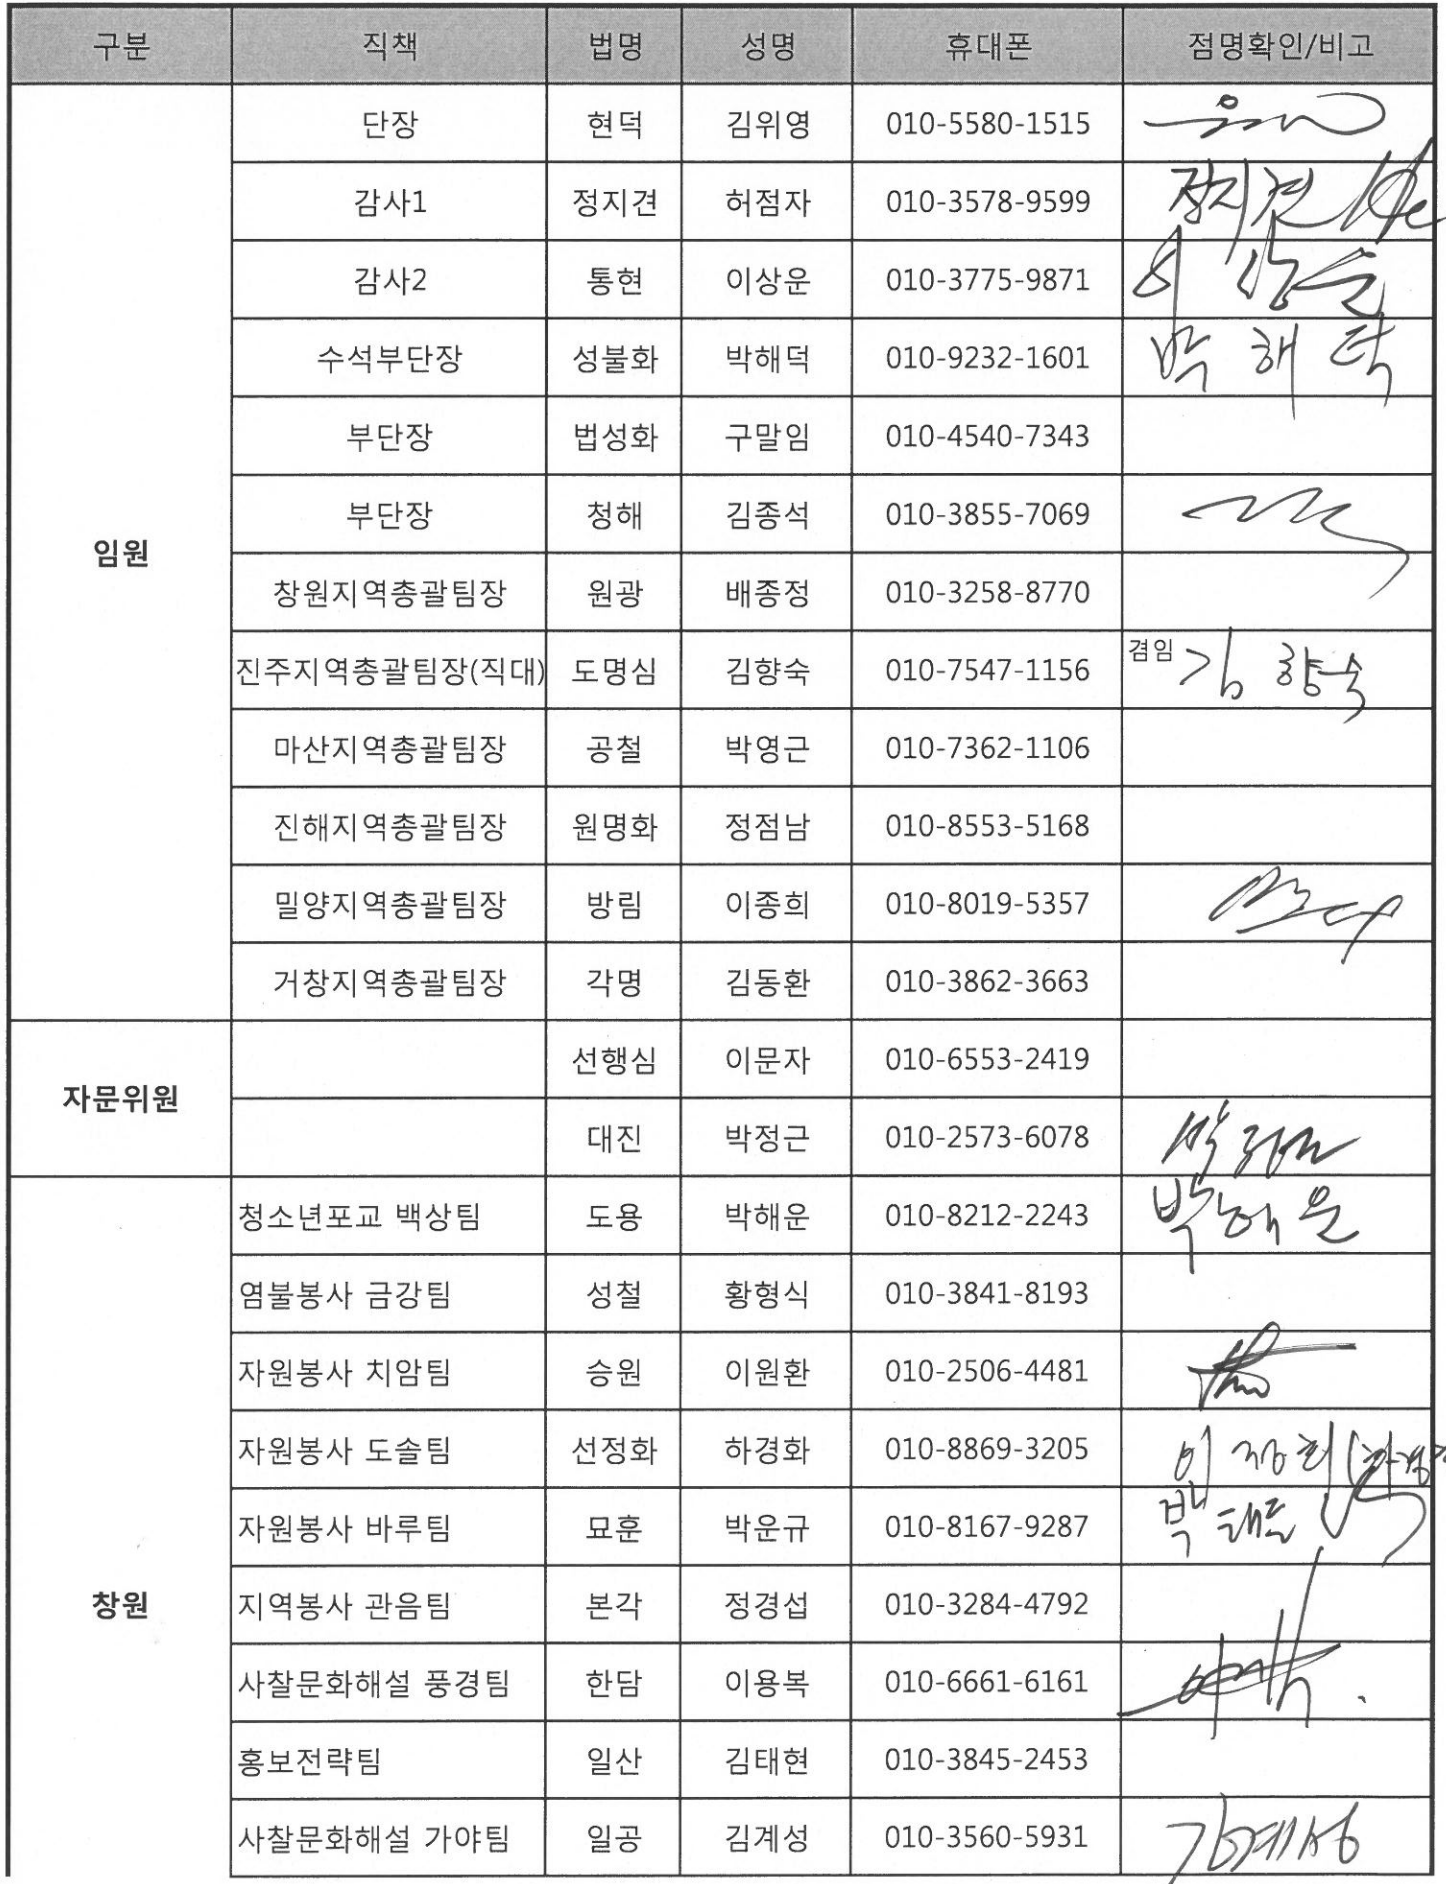 구분 직책 법명 성명 휴대폰 점명확인/비고
임원
단장 현덕 김위영 010-5580-1515
감사1 정지견 허점자 010-3578-9599 정지견
감사2 통현 이상운 010-3775-9871 이상운
수석부단장 성불화 박해덕 010-9232-1601 박해덕
부단장 법성화 구말임 010-4540-7343
부단장 청해 김종석 010-3855-7069
창원지역총괄팀장 원광 배종정 010-3258-8770
진주지역총괄팀장(직대) 도명심 김향숙 010-7547-1156 겸임 김향숙
마산지역총괄팀장 공철 박영근 010-7362-1106
진해지역총괄팀장 원명화 정점남 010-8553-5168
밀양지역총괄팀장 방림 이종희 010-8019-5357
거창지역총괄팀장 각명 김동환 010-3862-3663
자문위원
선행심 이문자 010-6553-2419
대진 박정근 010-2573-6078 박정근
창원
청소년포교 백상팀 도용 박해운 010-8212-2243 박해운
염불봉사 금강팀 성철 황형식 010-3841-8193
자원봉사 치암팀 승원 이원환 010-2506-4481
자원봉사 도솔팀 선정화 하경화 010-8869-3205
자원봉사 바루팀 묘훈 박운규 010-8167-9287
지역봉사 관음팀 본각 정경섭 010-3284-4792
사찰문화해설 풍경팀 한담 이용복 010-6661-6161
홍보전략팀 일산 김태현 010-3845-2453
사찰문화해설 가야팀 일공 김계성 010-3560-5931 김계성